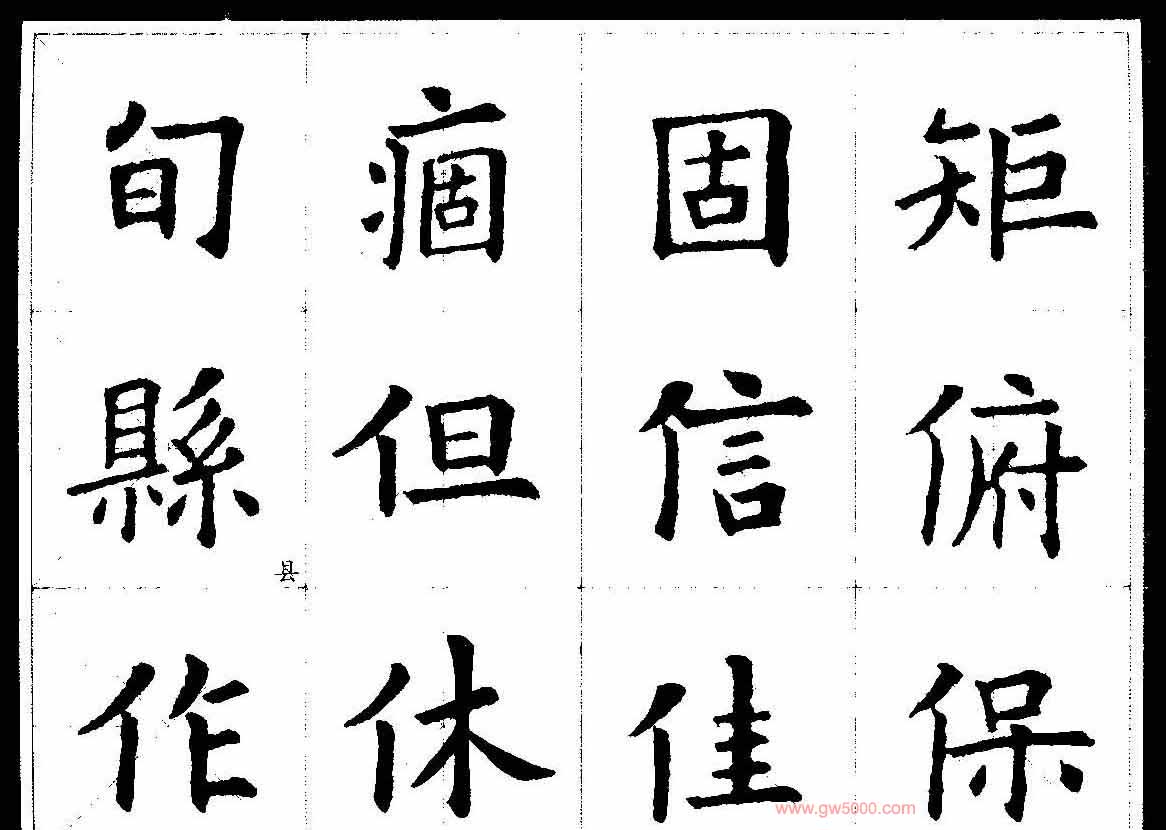 旬 痼 固 矩
縣 但 信 俯
县
作 休 佳 保
www.gw5000.com